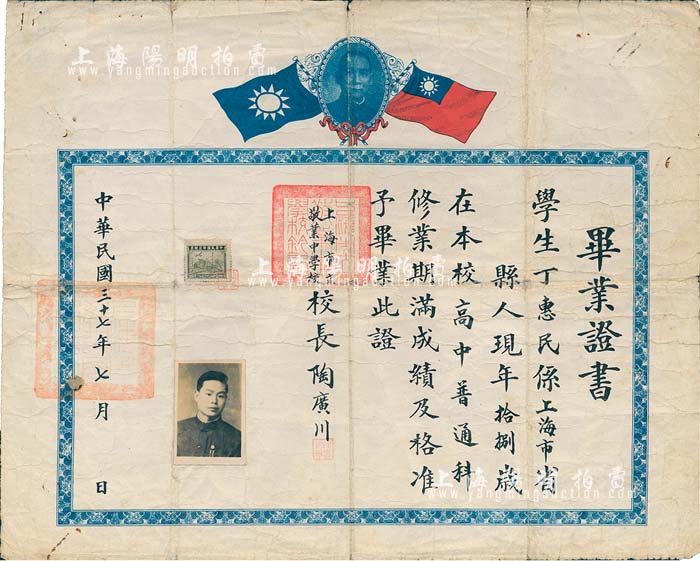 上海陽明拍賣
www.yangmingauction.com
畢業證書
學生丁惠民係上海市省
縣人現年拾捌歲
在本校高中普通科
修業期滿成績及格准
予畢業此證
上海市立
敬業中學校
校長陶廣川
中華民國三十七年七月 日
上海陽明拍賣
www.yangmingauction.com
上海陽明拍賣
www.yangmingauction.com